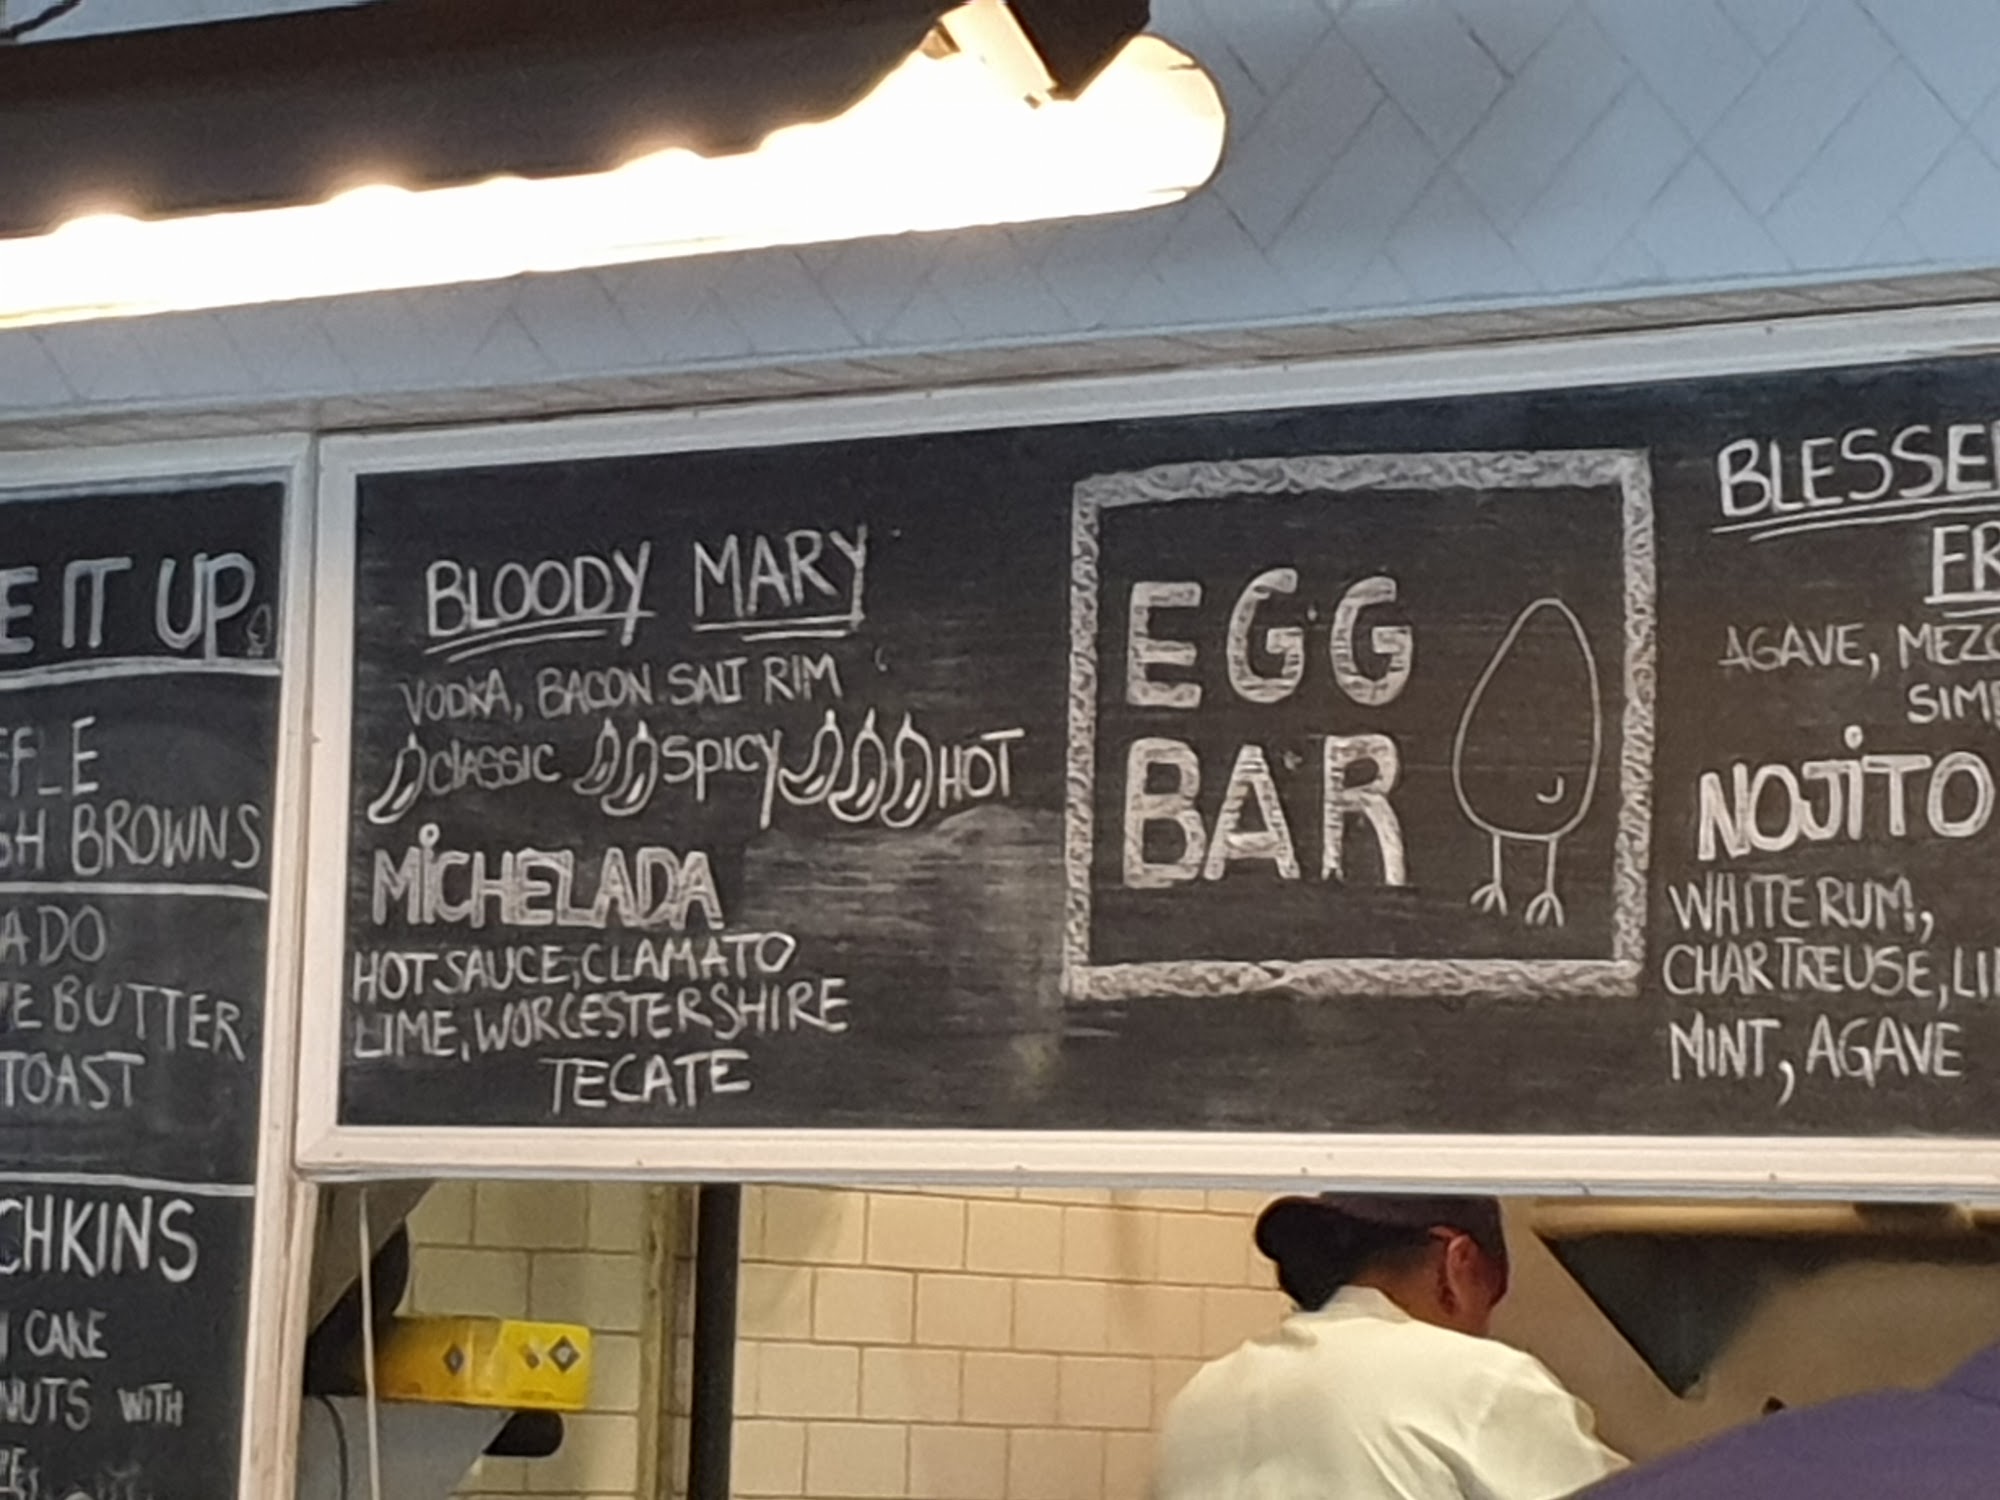 E IT UP
FFLE
SH BROWNS
ADO
E BUTTER
TOAST
CHKINS
CAKE
NUTS WITH
BLOODY MARY
VODKA, BACON SALT RIM
CLASSIC SPICY HOT
MICHELADA
HOT SAUCE, CLAMATO
LIME, WORCESTERSHIRE
TECATE
EGG
BAR
BLESSE
FR
AGAVE, MEZC
SIM
NOJITO
WHITE RUM,
CHARTREUSE, LI
MINT, AGAVE